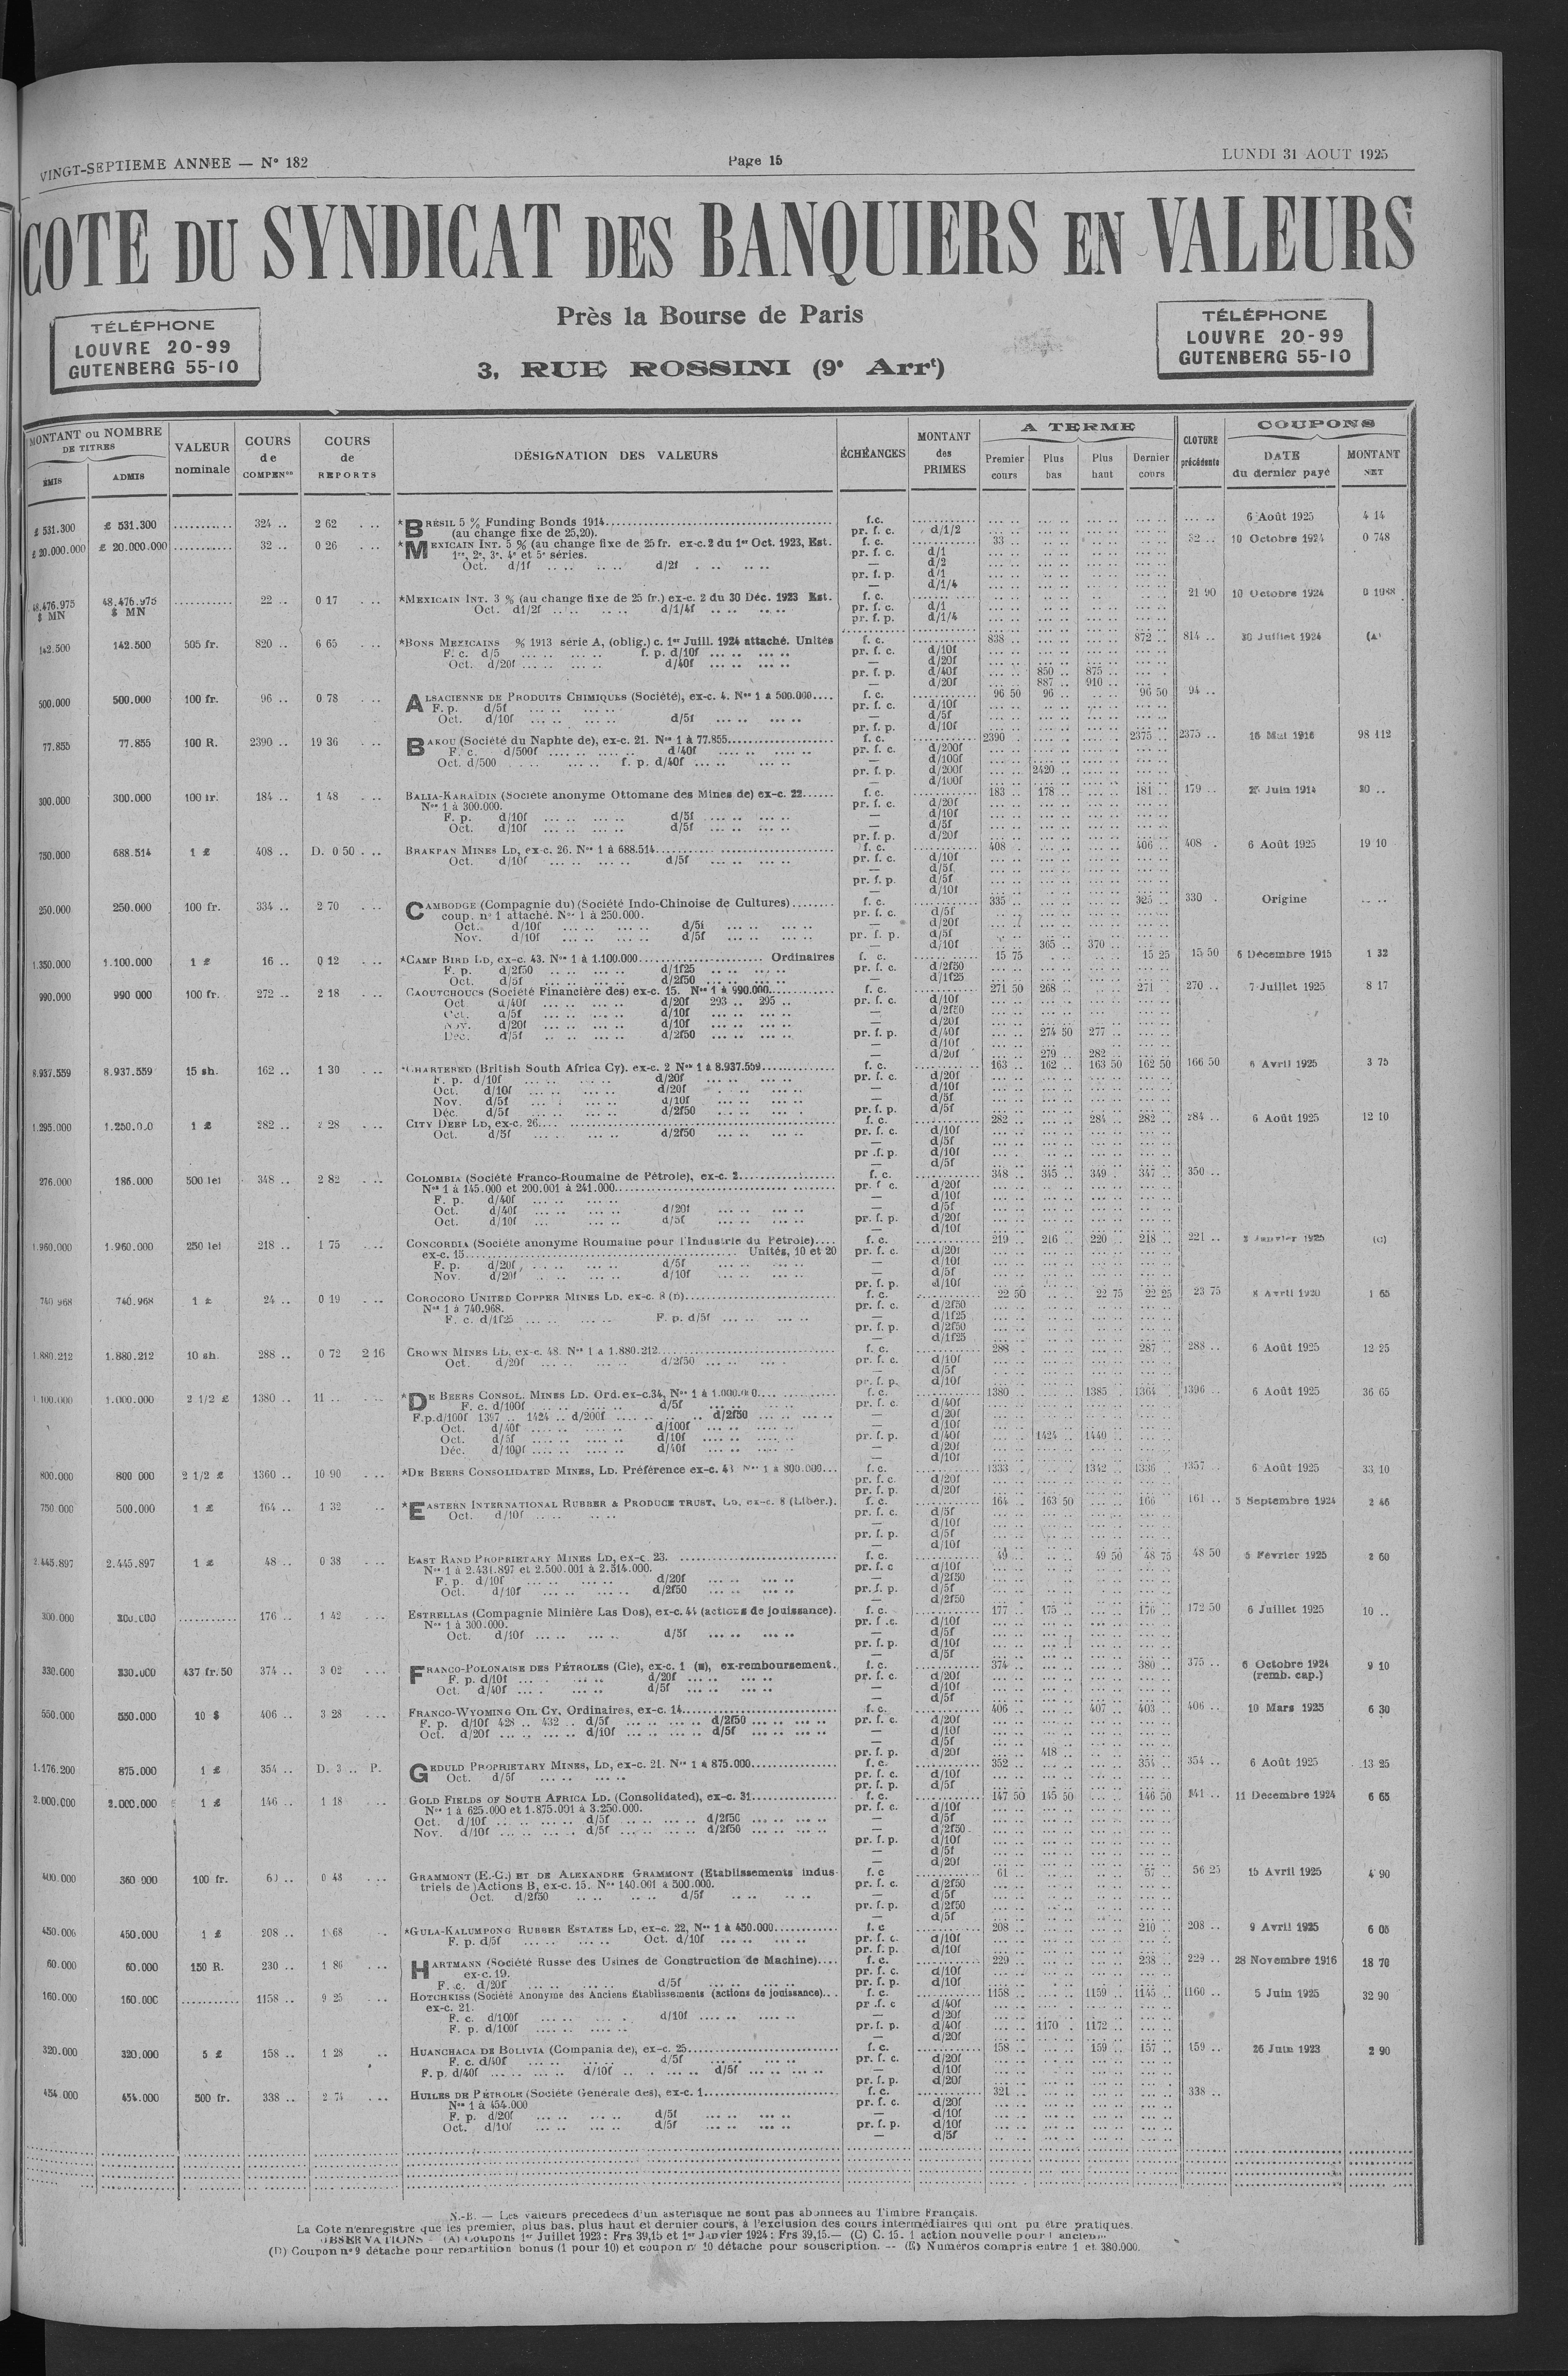 VINGT-SEPTIEME ANNEE — N° 182
Page 15
LUNDI 31 AOUT 1925
COTE DU SYNDICAT DES BANQUIERS EN VALEURS
Près la Bourse de Paris
3, RUE ROSSINI (9e Arrt)
TÉLÉPHONE
LOUVRE 20-99
GUTENBERG 55-10
TÉLÉPHONE
LOUVRE 20-99
GUTENBERG 55-10
MONTANT ou NOMBRE DE TITRES
ÉMIS ADMIS
VALEUR nominale
COURS de COMPENon
COURS de REPORTS
DÉSIGNATION DES VALEURS
ÉCHÉANCES
MONTANT des PRIMES
A TERME
Premier cours Plus bas Plus haut Dernier cours
CLOTURE précédente
COUPONS
DATE du dernier payé MONTANT NET
£ 531.300 £ 531.300 ........... 324 .. 2 62 *BRÉSIL 5 % Funding Bonds 1914 f.c. 6 Août 1925 4 14
(au change fixe de 25,20). pr. f. c. d/1/2
£ 20.000.000 £ 20.000.000 ........... 32 .. 0 26 *MEXICAIN INT. 5 % (au change fixe de 25 fr. ex-c.2 du 1er Oct. 1923, Est. f. c. 33 .. 32 .. 10 Octobre 1924 0 748
1re, 2e, 3e, 4e et 5e séries. pr. f. c. d/1
Oct. d/1f d/2f — d/2
pr. f. p. d/1
— d/1/4
48.476.975 $ MN 48.476.975 $ MN ........... 22 .. 0 17 *MEXICAIN INT. 3 % (au change fixe de 25 fr.) ex-c. 2 du 30 Déc. 1923 Est. f. c. 21 90 10 Octobre 1924
Oct. d1/2f d/1/4f pr. f. c. d/1
pr. f. p. d/1/4
142.500 142.500 505 fr. 820 .. 6 65 *BONS MEXICAINS % 1913 série A, (oblig.) c. 1er Juill. 1924 attaché. Unités f. c. 838 .. 872 .. 814 .. 30 Juillet 1924 (A)
F. c. d/5 f. p. d/10f pr. f. c. d/10f
Oct. d/20f d/40f — d/20f
pr. f. p. d/40f 850 .. 875 ..
— d/20f 887 .. 910 ..
500.000 500.000 100 fr. 96 .. 0 78 ALSACIENNE DE PRODUITS CHIMIQUES (Société), ex-c. 4. Nos 1 à 500.000 f. c. 96 50 96 .. 96 50 94 ..
F. p. d/5f pr. f. c. d/10f
Oct. d/10f d/5f — d/5f
pr. f. p. d/10f
77.855 77.855 100 R. 2390 .. 19 36 BAKOU (Société du Naphte de), ex-c. 21. Nos 1 à 77.855 f. c. 2390 2375 .. 2375 .. 16 Mai 1916 98 112
F. c. d/500f d/40f pr. f. c. d/200f
Oct. d/500 f. p. d/40f — d/100f
pr. f. p. d/200f 2420 ..
— d/100f
300.000 300.000 100 fr. 184 .. 1 48 BALIA-KARAÏDIN (Société anonyme Ottomane des Mines de) ex-c. 22 f. c. 183 .. 178 .. 181 .. 179 .. Juin 1914 20 ..
Nos 1 à 300.000. pr. f. c. d/20f
F. p. d/10f d/5f — d/10f
Oct. d/10f d/5f — d/5f
pr. f. p. d/20f
750.000 688.514 1 £ 408 .. D. 0 50 BRAKPAN MINES LD, ex-c. 26. Nos 1 à 688.514 f. c. 408 .. 406 .. 408 . 6 Août 1925 19 10
Oct. d/10f d/5f pr. f. c. d/10f
— d/5f
pr. f. p. d/5f
— d/10f
250.000 250.000 100 fr. 334 .. 2 70 CAMBODGE (Compagnie du) (Société Indo-Chinoise de Cultures) f. c. 335 .. 325 .. 330 . Origine
coup. n° 1 attaché. Nos 1 à 250.000. pr. f. c. d/5f
Oct. d/10f d/5f — d/20f
Nov. d/10f d/5f pr. f. p. d/5f
— d/10f 365 .. 370 ..
1.350.000 1.100.000 1 £ 16 .. 0 12 *CAMP BIRD LD, ex-c. 43. Nos 1 à 1.100.000 Ordinaires f. c. 15 75 15 25 15 50 6 Décembre 1915 1 32
F. p. d/2f50 d/1f25 pr. f. c. d/2f50
Oct. d/5f d/2f50 — d/1f25
990.000 990 000 100 fr. 272 .. 2 18 CAOUTCHOUCS (Société Financière des) ex-c. 15. Nos 1 à 990.000 f. c. 271 50 268 .. 271 .. 270 .. 7 Juillet 1925 8 17
Oct d/40f d/20f 293 .. 295 .. pr. f. c. d/10f
Oct. d/5f d/10f — d/2f50
Nov. d/20f d/10f — d/20f
Déc. d/5f d/2f50 pr. f. p. d/40f 274 50 277 ..
— d/10f
— d/20f 279 .. 282 ..
8.937.559 8.937.559 15 sh. 162 .. 1 30 *CHARTERED (British South Africa Cy). ex-c. 2 Nos 1 à 8.937.559 f. c. 163 .. 162 .. 163 50 162 50 166 50 6 Avril 1925 3 75
F. p. d/10f d/20f pr. f. c. d/20f
Oct. d/10f d/20f — d/10f
Nov. d/5f d/10f — d/5f
Déc. d/5f d/2f50 pr. f. p. d/5f
1.295.000 1 £ 282 .. 2 28 CITY DEEP LD, ex-c. 26 f. c. 282 .. 284 .. 282 .. 284 .. 6 Août 1925 12 10
Oct. d/5f d/2f50 pr. f. c. d/10f
— d/5f
pr .f. p. d/10f
— d/5f
276.000 186.000 500 lei 348 .. 2 82 COLOMBIA (Société Franco-Roumaine de Pétrole), ex-c. 2 f. c. 348 .. 345 .. 349 . 347 .. 350 ..
Nos 1 à 145.000 et 200.001 à 241.000 pr. f c. d/20f
F. p. d/40f — d/10f
Oct. d/40f d/20f — d/5f
Oct. d/10f d/5f pr. f. p. d/20f
— d/10f
1.960.000 1.960.000 250 lei 218 .. 1 75 CONCORDIA (Société anonyme Roumaine pour l'Industrie du Pétrole) f. c. 219 .. 216 .. 220 .. 218 .. 221 .. Janvier 1925 (C)
ex-c. 15 Unités, 10 et 20 pr. f. c. d/20f
F. p. d/20f d/5f — d/10f
Nov. d/20f d/10f — d/5f
pr. f. p. d/10f
740 968 740.968 1 £ 24 .. 0 19 COROCORO UNITED COPPER MINES LD. ex-c. 8 (D) f. c. 22 50 22 75 22 25 23 75 8 Avril 1920 1 65
Nos 1 à 740.968. pr. f. c. d/2f50
F. c. d/1f25 F. p. d/5f — d/1f25
pr. f. p. d/2f50
— d/1f25
1.880.212 1.880.212 10 sh. 288 .. 0 72 2 16 CROWN MINES LD, ex-c. 48. Nos 1 à 1.880.212 f. c. 288 287 .. 288 .. 6 Août 1925 12 25
Oct. d/20f d/2f50 pr. f. c. d/10f
— d/5f
pr. f. p. d/10f
1.100.000 1.000.000 2 1/2 £ 1380 .. 11 .. *DE BEERS CONSOL. MINES LD. Ord.ex-c.34, Nos 1 à 1.000.000 f. c. 1380 1385 1364 1396 .. 6 Août 1925 36 65
F. c. d/100f d/5f pr. f. c. d/40f
F.p.d/100f 1397 .. 1424 .. d/200f d/2f50 — d/20f
Oct. d/40f d/100f — d/10f
Oct. d/5f d/10f pr. f. p. d/40f 1424 .. 1440 ..
Déc. d/100f d/40f — d/20f
— d/10f
800.000 800 000 2 1/2 £ 1360 .. 10 90 *DE BEERS CONSOLIDATED MINES, LD. Préférence ex-c. 43 Nos 1 à 800.000 f. c. 1333 1342 1336 1357 6 Août 1925 33 10
pr. f. c. d/20f
pr. f. p. d/20f
750 000 500.000 1 £ 164 .. 1 32 *EASTERN INTERNATIONAL RUBBER & PRODUCE TRUST, LD, ex-c. 8 (Liber.). f. c. 164 .. 163 50 166 161 .. 5 Septembre 1924 2 46
Oct. d/10f pr. f. c. d/5f
— d/10f
pr. f. p. d/5f
— d/10f
2.445.897 2.445.897 1 £ 48 .. 0 38 EAST RAND PROPRIETARY MINES LD, ex-c. 23. f. c. 49 .. 49 50 48 75 48 50 5 Février 1925 2 60
Nos 1 à 2.431.897 et 2.500.001 à 2.514.000. pr. f. c d/10f
F. p. d/10f d/20f — d/2f50
Oct. d/10f d/2f50 pr. f. p. d/5f
— d/2f50
300.000 300.000 ........... 176 .. 1 42 ESTRELLAS (Compagnie Minière Las Dos), ex-c. 44 (actions de jouissance). f. c. 177 .. 175 .. 176 .. 172 50 6 Juillet 1925 10 ..
Nos 1 à 300.000. pr. f .c. d/10f
Oct. d/10f d/5f — d/5f
pr. f. p. d/10f
— d/5f
330.000 330.000 437 fr.50 374 .. 3 02 FRANCO-POLONAISE DES PÉTROLES (Cie), ex-c. 1 (E), ex-remboursement. f. c. 374 .. 380 .. 375 .. 6 Octobre 1924 (remb. cap.) 9 10
F. p. d/10f d/20f pr. f. c. d/20f
Oct. d/40f d/5f — d/10f
— d/5f
550.000 550.000 10 $ 406 .. 3 28 FRANCO-WYOMING OIL CY, Ordinaires, ex-c. 14 f. c. 406 .. 407 .. 403 .. 406 .. 10 Mars 1925 6 30
F. p. d/10f 428 .. 432 .. d/5f d/2f50 pr. f. c. d/20f
Oct. d/20f d/10f d/5f — d/10f
— d/5f
pr. f. p. d/20f 418 ..
1.176.200 875.000 1 £ 354 .. D. 3 .. P. GEDULD PROPRIETARY MINES, LD, ex-c. 21. Nos 1 à 875.000 f. c. 352 .. 354 .. 354 .. 6 Août 1925 13 25
Oct. d/5f pr. f. c. d/10f
pr. f. p. d/5f
2.000.000 2.000.000 1 £ 146 .. 1 18 GOLD FIELDS OF SOUTH AFRICA LD. (Consolidated), ex-c. 31 f. c. 147 50 145 50 146 50 141 .. 11 Decembre 1924 6 65
Nos 1 à 625.000 et 1.875.001 à 3.250.000. pr. f. c. d/10f
Oct. d/10f d/5f d/2f50 — d/5f
Nov. d/10f d/5f d/2f50 — d/2f50
pr. f. p. d/10f
— d/5f
— d/20f
400.000 360 000 100 fr. 0 48 GRAMMONT (E.-C.) ET DE ALEXANDRE GRAMMONT (Etablissements indus- f. c 61 .. 57 .. 56 25 15 Avril 1925 4 90
triels de )Actions B, ex-c. 15. Nos 140.001 à 500.000. pr. f. c. d/2f50
Oct. d/2f50 d/5f — d/5f
pr. f. p. d/2f50
— d/5f
450.000 450.000 1 £ 208 .. 1 68 *GULA-KALUMPONG RUBBER ESTATES LD, ex-c. 22, Nos 1 à 450.000 f. c 208 .. 210 .. 208 .. 9 Avril 1925 6 05
F. p. d/5f Oct. d/10f pr. f. c. d/10f
pr. f. p. d/10f
60.000 60.000 150 R. 230 .. 1 86 HARTMANN (Société Russe des Usines de Construction de Machine) f. c. 229 .. 238 .. 229 .. 28 Novembre 1916 18 70
ex-c. 19. pr. f. c. d/10f
F. c. d/20f d/5f pr. f. p. d/10f
160.000 160.000 ........... 1158 .. 9 25 HOTCHKISS (Société Anonyme des Anciens Établissements (actions de jouissance) f. c. 1158 .. 1159 .. 1145 .. 1160 .. 5 Juin 1925 32 90
ex-c. 21. pr .f. c d/40f
F. c. d/100f d/10f — d/20f
F. p. d/100f pr. f. p. d/40f 1170 . 1172 ..
— d/20f
320.000 320.000 5 £ 158 .. 1 28 HUANCHACA DE BOLIVIA (Compania de), ex-c. 25 f. c. 158 .. 159 .. 157 .. 159 .. 26 Juin 1923 2 90
F. c. d/40f d/5f pr. f. c. d/20f
F. p. d/40f d/10f d/5f — d/10f
pr. f. p. d/20f
454.000 454.000 500 fr. 338 .. 2 74 HUILES DE PÉTROLE (Société Générale des), ex-c. 1 f. c. 321 338 ..
Nos 1 à 454.000 pr. f. c. d/20f
F. p. d/20f d/5f — d/10f
Oct. d/10f d/5f pr. f. p. d/10f
— d/5f
N.-B. — Les valeurs precedees d'un asterisque ne sont pas abonnees au Timbre Français.
La Cote n'enregistre que les premier, plus bas, plus haut et dernier cours, à l'exclusion des cours intermédiaires qui ont pu être pratiques.
OBSERVATIONS - (A) Coupons 1er Juillet 1923 : Frs 39,15 et 1er Janvier 1924 : Frs 39,15.— (C) C. 15. 1 action nouvelle pour 1 ancienne
(D) Coupon n° 9 détache pour repartition bonus (1 pour 10) et coupon n° 10 détache pour souscription. -- (E) Numéros compris entre 1 et 380.000.